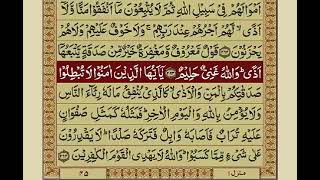 اَمْوَالَهُمْ فِیْ سَبِیْلِ اللّٰهِ ثُمَّ لَا یُتْبِعُوْنَ مَاۤ اَنْفَقُوْا مَنًّا وَّلَاۤ
اَذًیۙ لَّهُمْ اَجْرُهُمْ عِنْدَ رَبِّهِمْۚ وَلَا خَوْفٌ عَلَیْهِمْ وَلَا هُمْ
یَحْزَنُوْنَ قَوْلٌ مَّعْرُوْفٌ وَّمَغْفِرَةٌ خَیْرٌ مِّنْ صَدَقَةٍ یَّتْبَعُهَاۤ
اَذًیؕ وَاللّٰهُ غَنِیٌّ حَلِیْمٌ ﴿۲۶۳﴾ یٰۤاَیُّهَا الَّذِیْنَ اٰمَنُوْا لَا تُبْطِلُوْا
صَدَقٰتِكُمْ بِالْمَنِّ وَالْاَذٰیۙ كَالَّذِیْ یُنْفِقُ مَالَهٗ رِئَآءَ النَّاسِ
وَلَا یُؤْمِنُ بِاللّٰهِ وَالْیَوْمِ الْاٰخِرِؕ فَمَثَلُهٗ كَمَثَلِ صَفْوَانٍ
عَلَیْهِ تُرَابٌ فَاَصَابَهٗ وَابِلٌ فَتَرَكَهٗ صَلْدًاؕ لَا یَقْدِرُوْنَ
عَلٰی شَیْءٍ مِّمَّا كَسَبُوْاؕ وَاللّٰهُ لَا یَهْدِی الْقَوْمَ الْكٰفِرِیْنَ
منزل ۱ ۴۵